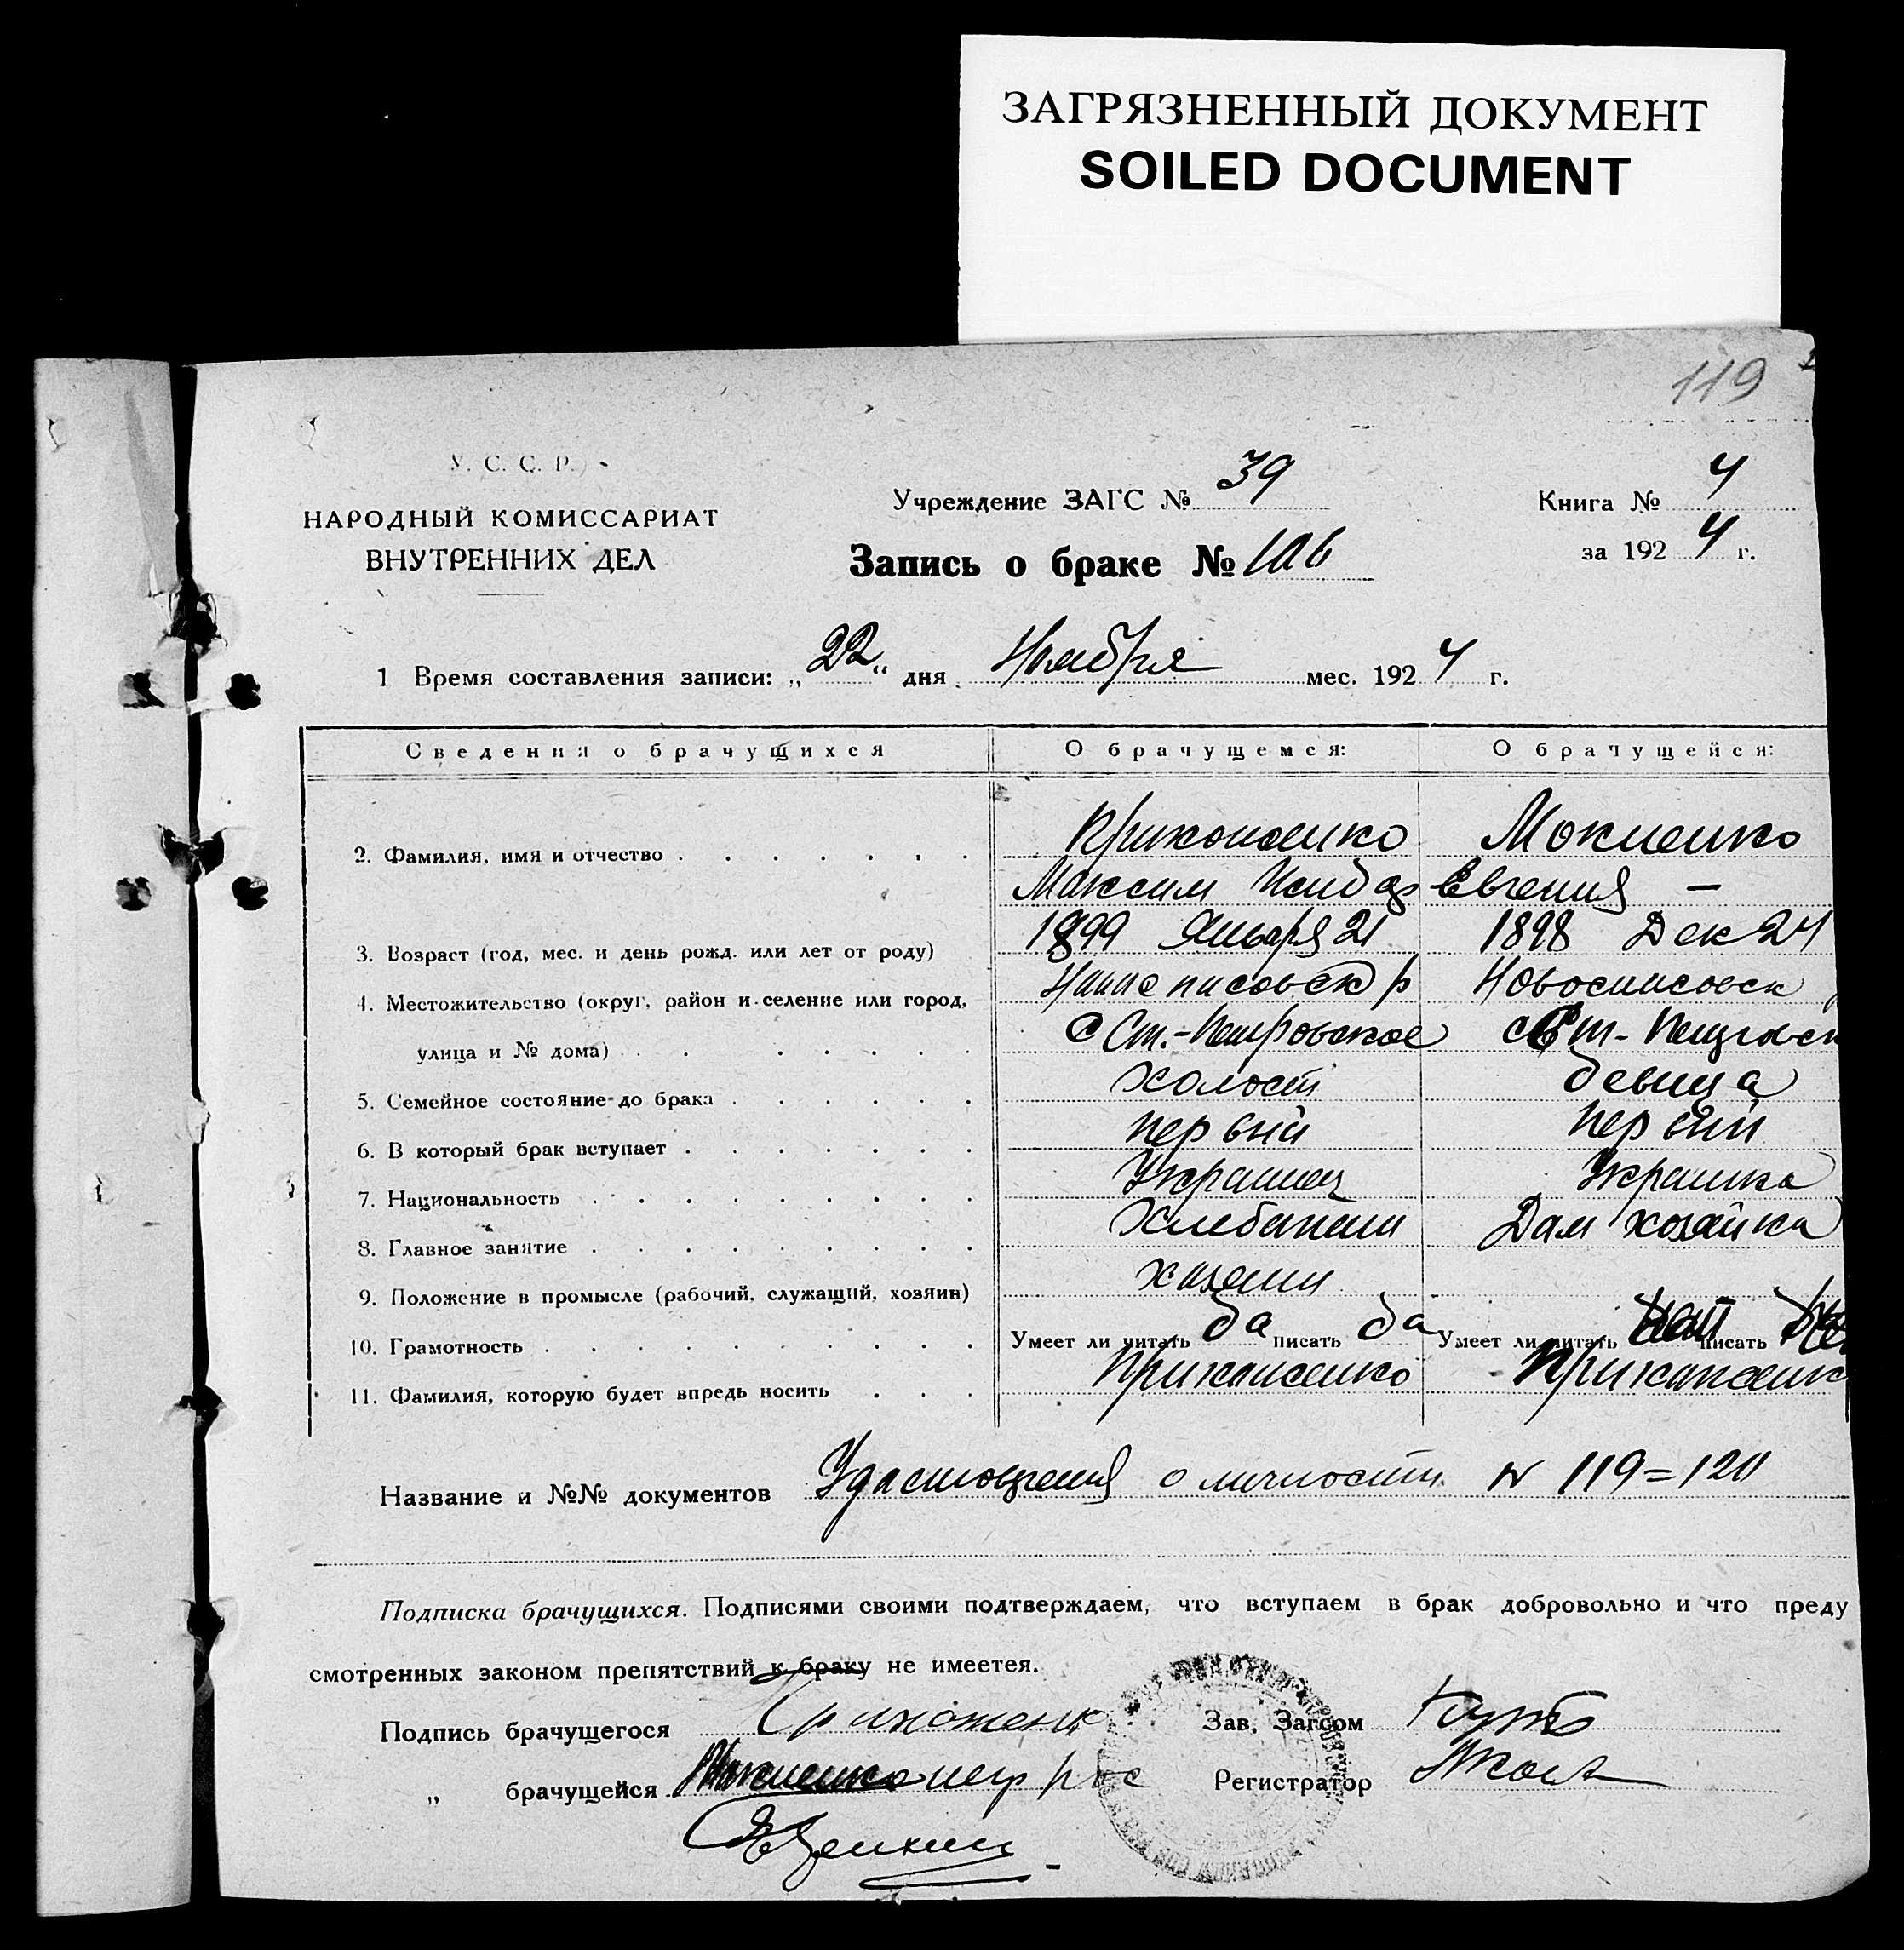 ЗАГРЯЗНЕННЫЙ ДОКУМЕНТ
SOILED DOCUMENT
119
У. С. С. Р.
НАРОДНЫЙ КОМИССАРИАТ
ВНУТРЕННИХ ДЕЛ
Учреждение ЗАГС № 39
Запись о браке № 106
Книга № 4
за 1924 г.
1 Время составления записи: „22“ дня Ноября мес. 1924 г.
Сведения о брачущихся О брачущемся: О брачущейся:
2. Фамилия, имя и отчество Приконенко Мокиенко
Максим Евгения —
3. Возраст (год, мес. и день рожд. или лет от роду) 1899 Января 21 1898 Дек 24
4. Местожительство (округ, район и селение или город, р
улица и № дома) с Ст.-Петровское с Ст-
5. Семейное состояние до брака холост девица
6. В который брак вступает первый первый
7. Национальность Украинец Украинка
8. Главное занятие Хлебопаш Дом хозяйка
9. Положение в промысле (рабочий, служащий, хозяин) хозяин
10. Грамотность Умеет ли читать да писать да Умеет ли читать нет писать
11. Фамилия, которую будет впредь носить Приконенко Приконенк
Название и №№ документов Удостоверения о личности N 119=120
Подписка брачущихся. Подписями своими подтверждаем, что вступаем в брак добровольно и что преду
смотренных законом препятствий к браку не имеетея.
Подпись брачущегося Зав. Загсом
„ брачущейся Мокиенко негр Регистратор